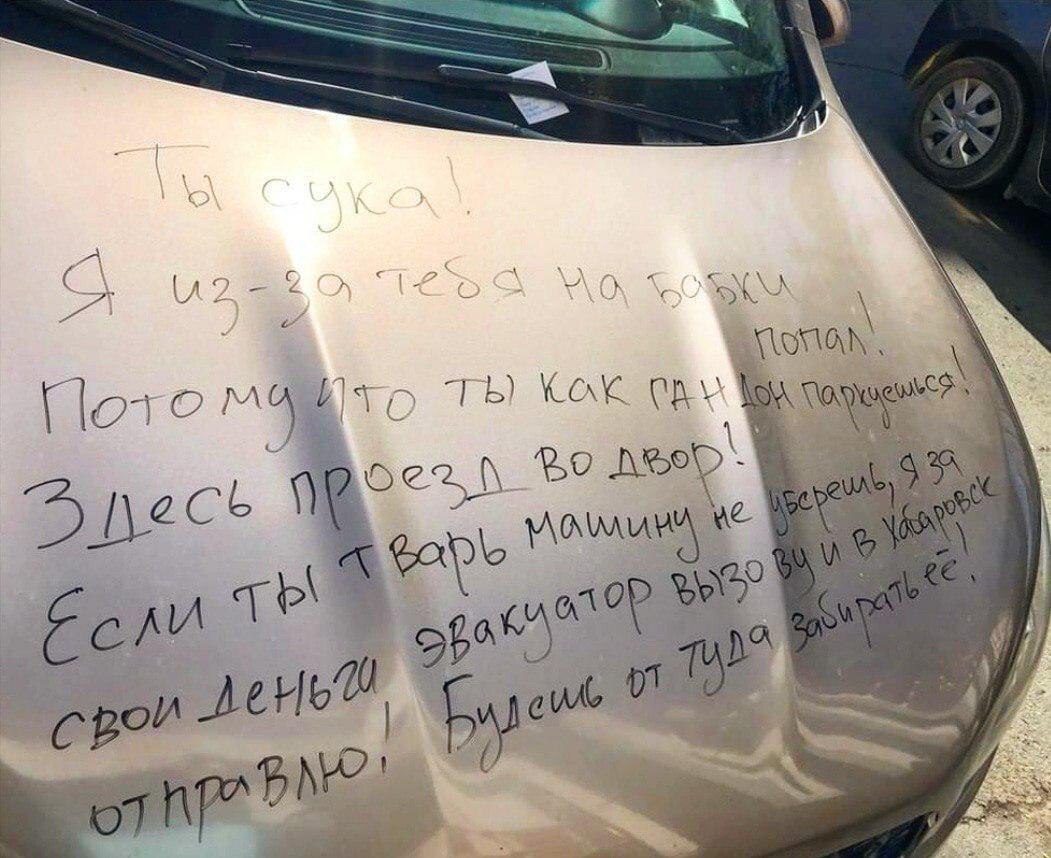 Ты сука!
Я из-за тебя на бабки
попал!
Потому что ты как гандон паркуешься!
Здесь проезд во двор!
Если ты тварь машину не уберешь, я за
свои деньги эвакуатор вызову и в Хабаровск
отправлю! Будешь от туда забирать её!